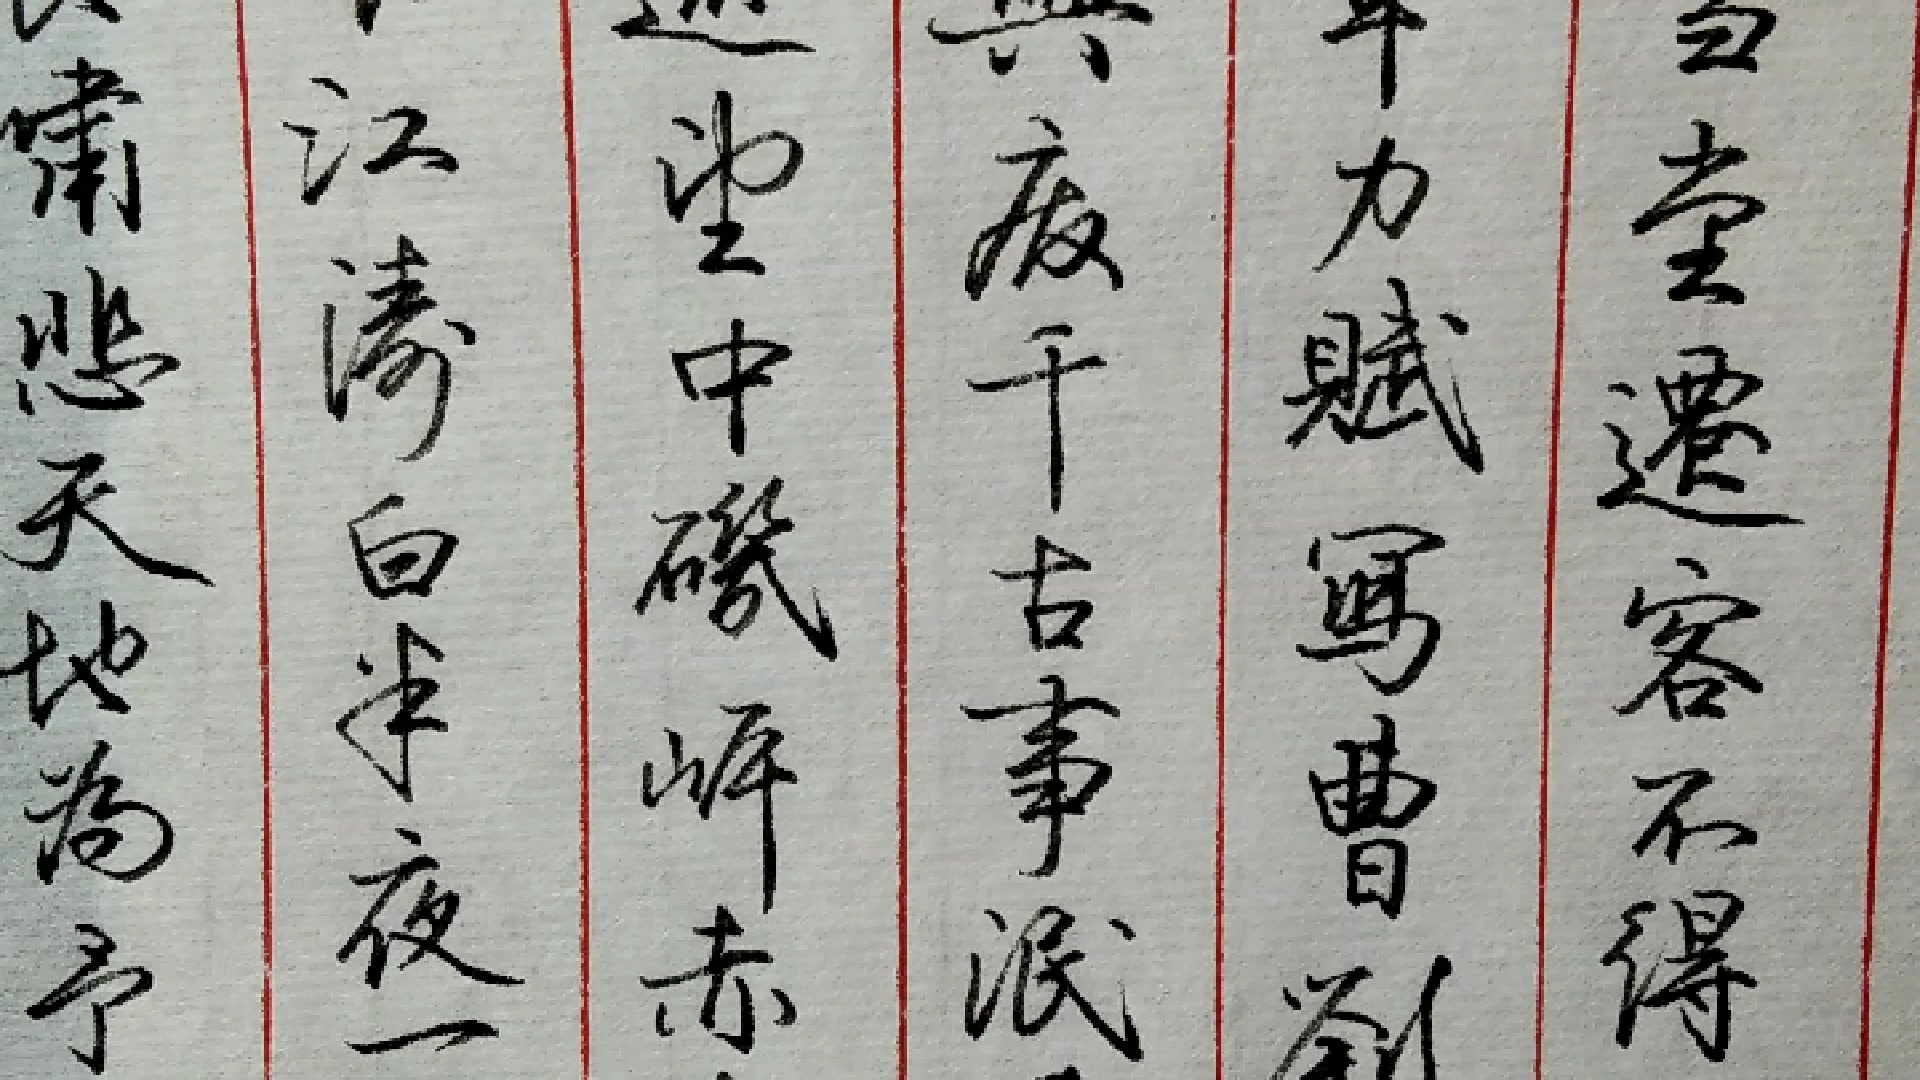 堂遷客不得
年力賦寫曹劉
興廢千古事泯
遊望中磯岸赤
江濤白半夜一
嘯悲天地為予